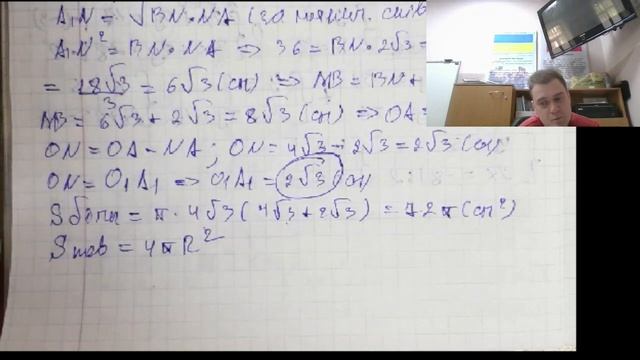 A₁N = √BN·NA (за
A₁N² = BN·NA ⇒ 36 = BN·2√3 ⇒
= 18√3 = 6√3 (см) ⇒ AB = BN +
3
AB = 6√3 + 2√3 = 8√3 (см) ⇒ OA =
ON = OA − NA; ON = 4√3 − 2√3 = 2√3 (см)
ON = O₁A₁ ⇒ O₁A₁ = 2√3 (см)
Sбічн = π·4√3(4√3+2√3) = 72π (см²)
Sпов = 4πR²